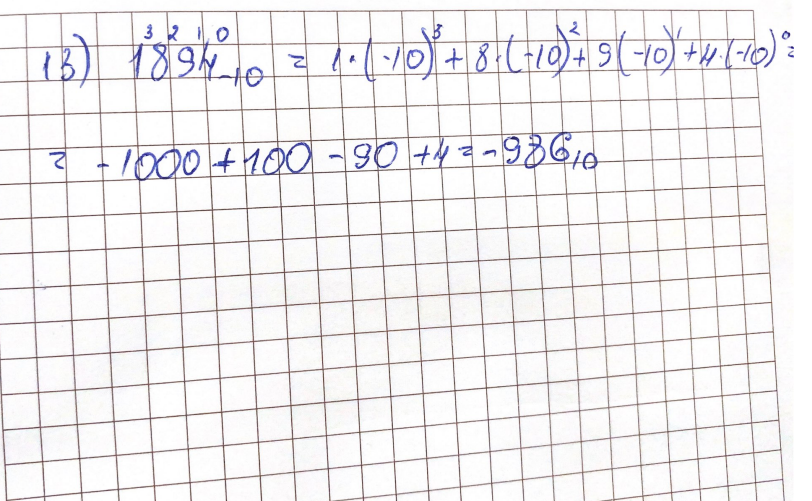 13) 1³8²9¹4⁰₋₁₀ = 1·(-10)³ + 8·(-10)² + 9(-10)¹ + 4·(-10)⁰ =
= -1000 + 100 - 90 + 4 = -986₁₀